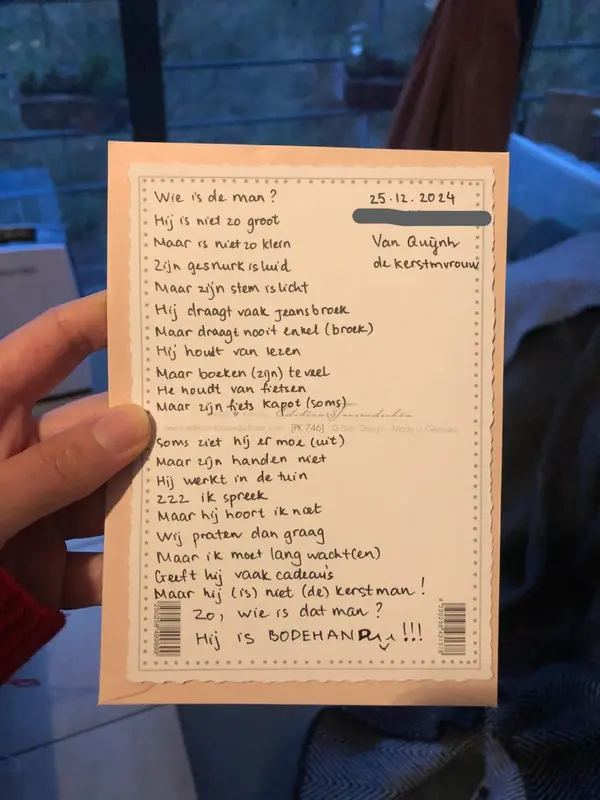 Wie is de man?
25.12.2024
Hij is niet zo groot
Maar is niet zo klein
Van Quỳnh
Zijn gesnurk is luid
de kerstmvrouw
Maar zijn stem is licht
Hij draagt vaak jeansbroek
Maar draagt nooit enkel (broek)
Hij houdt van lezen
Maar boeken (zijn) te veel
He houdt van fietsen
Maar zijn fiets kapot (soms)
[PK 746]
Made in Germany
Soms ziet hij er moe (uit)
Maar zijn handen niet
Hij werkt in de tuin
zzz ik spreek
Maar hij hoort ik niet
Wij praten dan graag
Maar ik moet lang wacht(en)
Geeft hij vaak cadeau's
Maar hij (is) niet (de) kerstman!
Zo, wie is dat man?
Hij is BODEHAND !!!